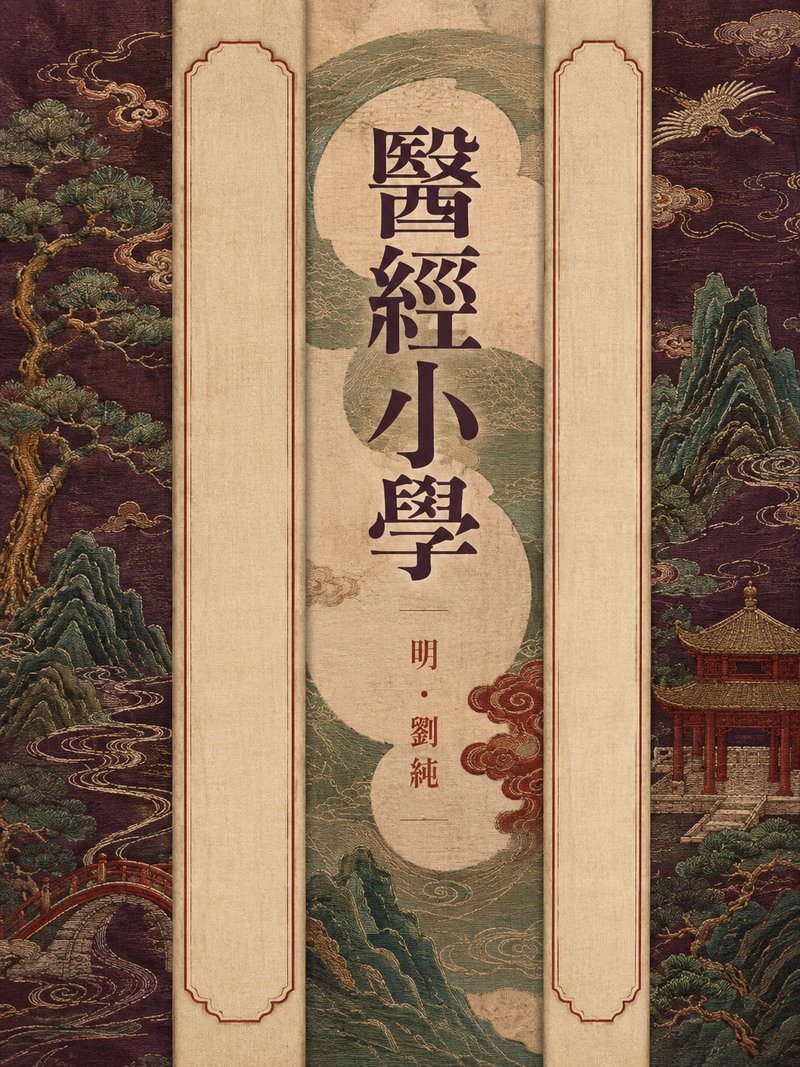 醫經小學
明・劉純